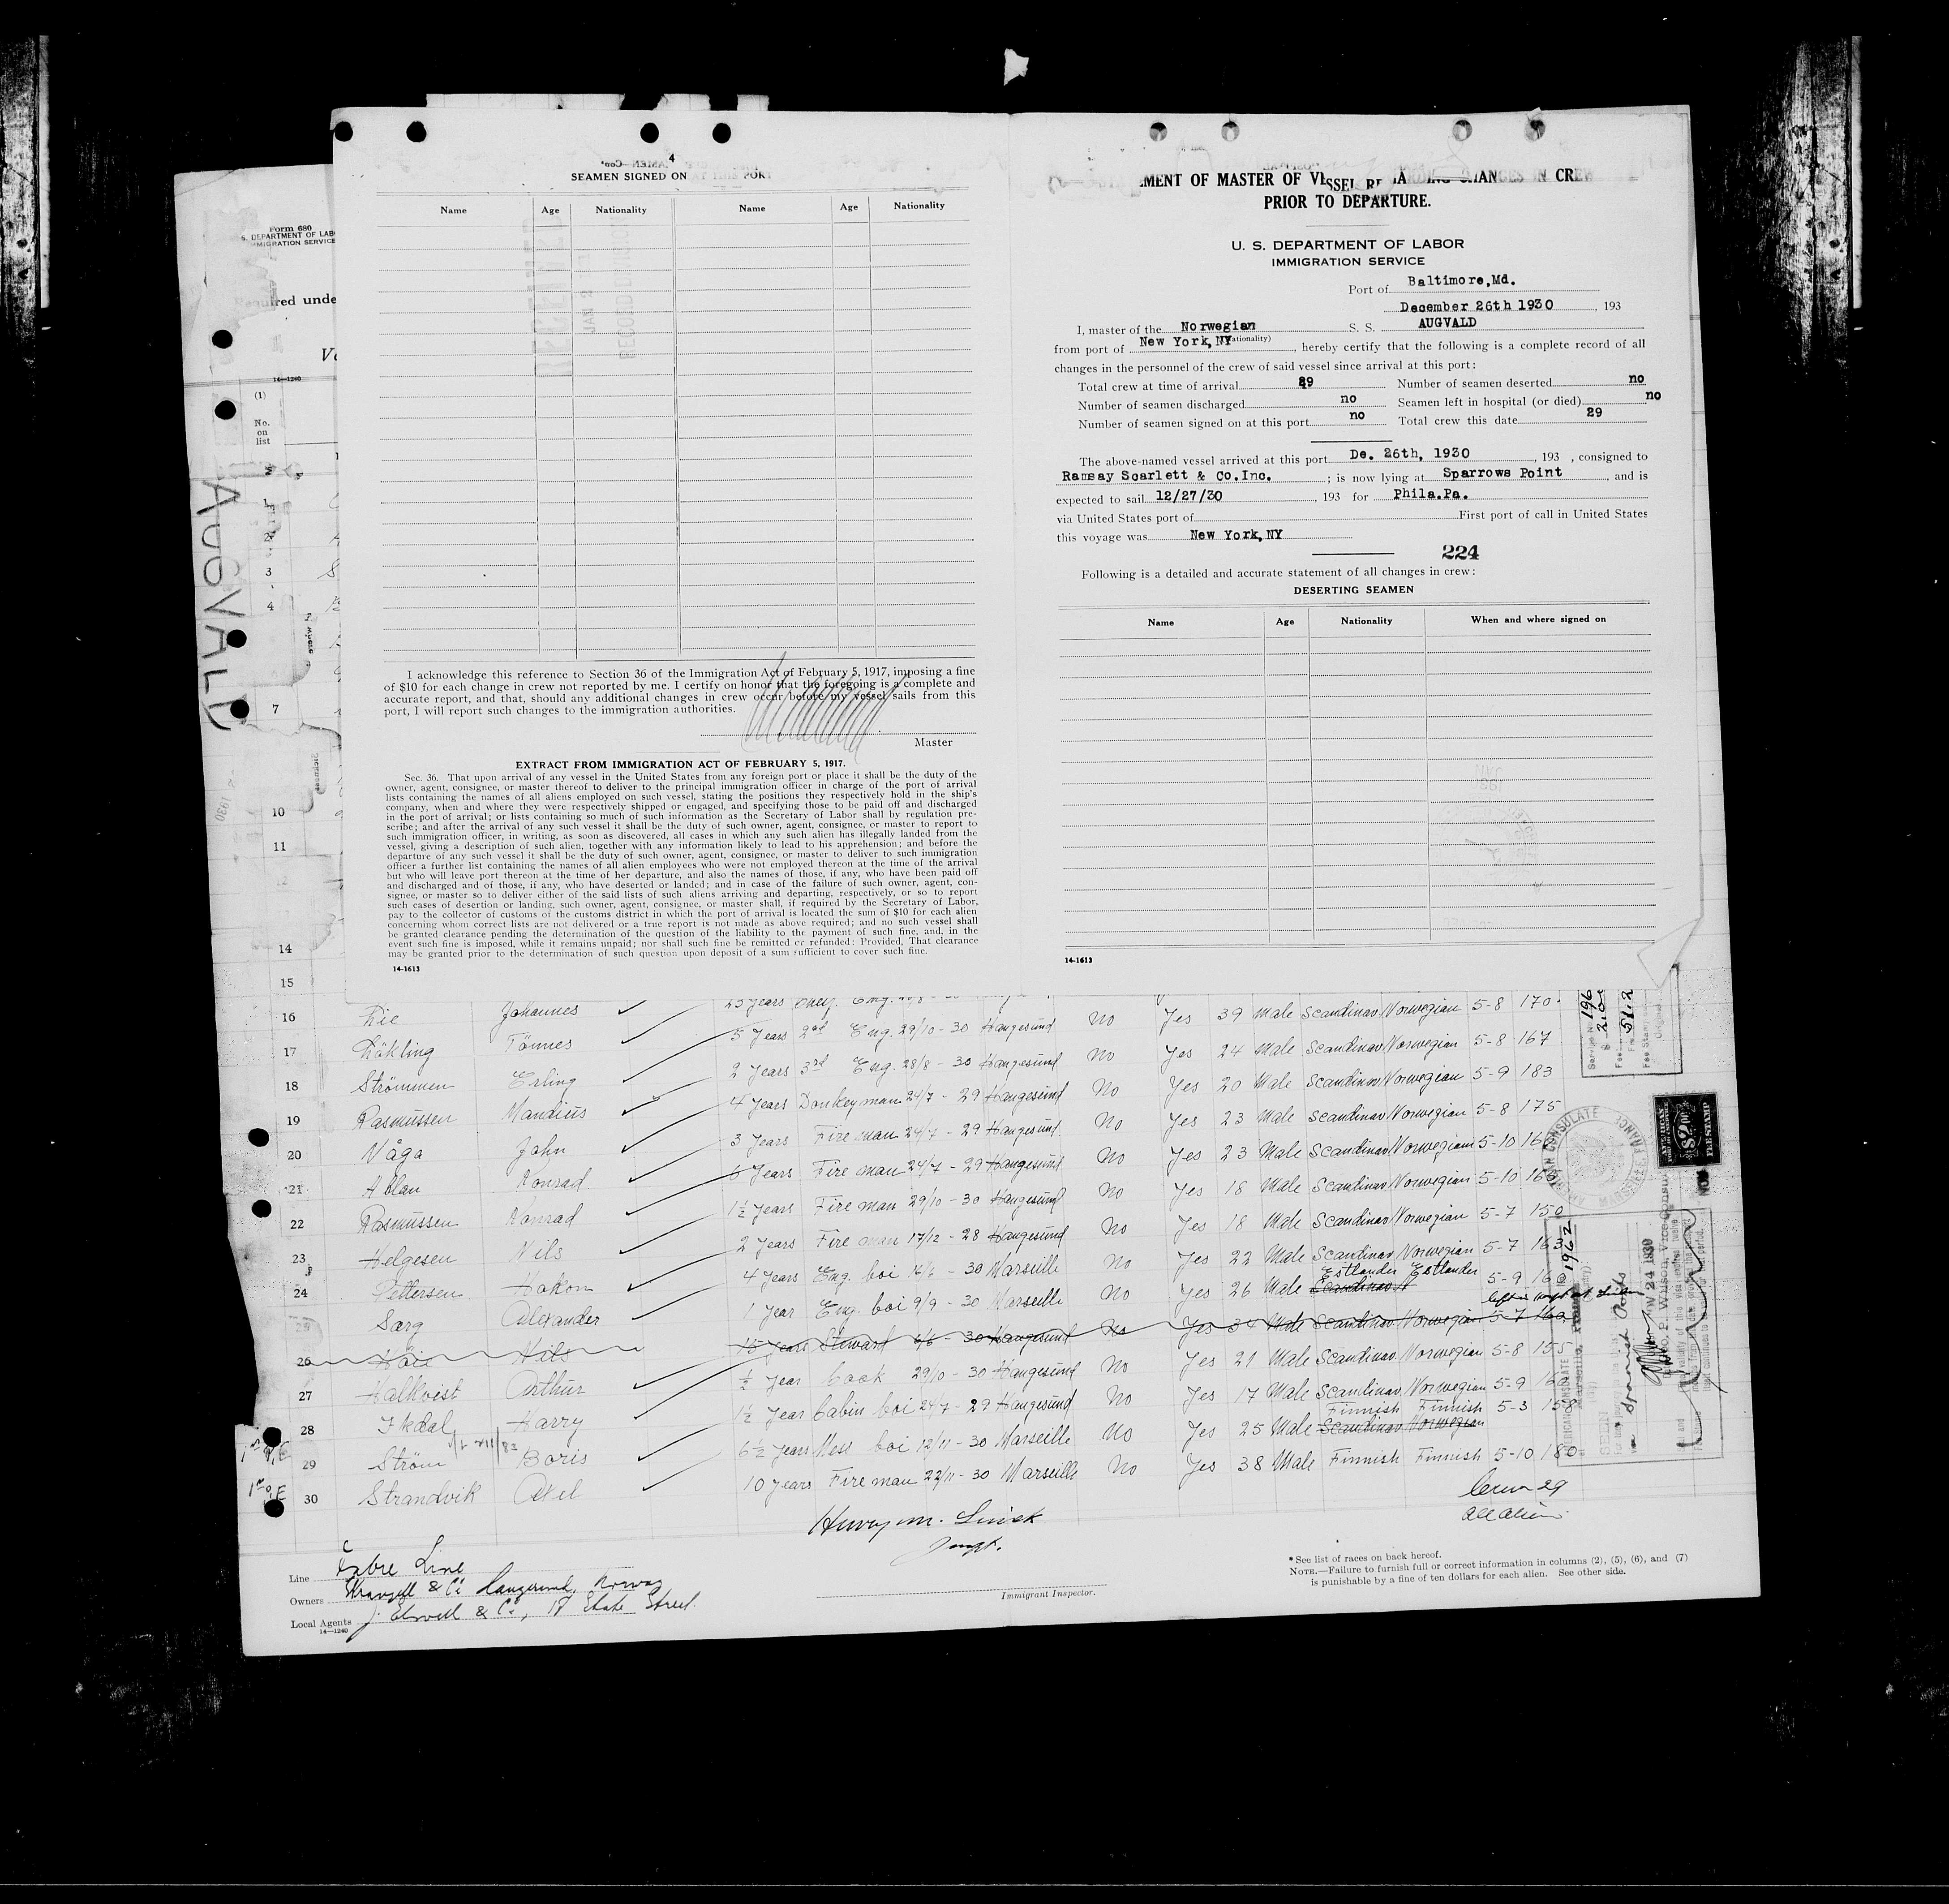 4
SEAMEN SIGNED ON AT THIS PORT
Name Age Nationality Name Age Nationality
I acknowledge this reference to Section 36 of the Immigration Act of February 5, 1917, imposing a fine
of $10 for each change in crew not reported by me. I certify on honor that the foregoing is a complete and
accurate report, and that, should any additional changes in crew occur before my vessel sails from this
port, I will report such changes to the immigration authorities.
Master
EXTRACT FROM IMMIGRATION ACT OF FEBRUARY 5, 1917.
Sec. 36. That upon arrival of any vessel in the United States from any foreign port or place it shall be the duty of the
owner, agent, consignee, or master thereof to deliver to the principal immigration officer in charge of the port of arrival
lists containing the names of all aliens employed on such vessel, stating the positions they respectively hold in the ship's
company, when and where they were respectively shipped or engaged, and specifying those to be paid off and discharged
in the port of arrival; or lists containing so much of such information as the Secretary of Labor shall by regulation pre-
scribe; and after the arrival of any such vessel it shall be the duty of such owner, agent, consignee, or master to report to
such immigration officer, in writing, as soon as discovered, all cases in which any such alien has illegally landed from the
vessel, giving a description of such alien, together with any information likely to lead to his apprehension; and before the
departure of any such vessel it shall be the duty of such owner, agent, consignee, or master to deliver to such immigration
officer a further list containing the names of all alien employees who were not employed thereon at the time of the arrival
but who will leave port thereon at the time of her departure, and also the names of those, if any, who have been paid off
and discharged and of those, if any, who have deserted or landed; and in case of the failure of such owner, agent, con-
signee, or master so to deliver either of the said lists of such aliens arriving and departing, respectively, or so to report
such cases of desertion or landing, such owner, agent, consignee, or master shall, if required by the Secretary of Labor,
pay to the collector of customs of the customs district in which the port of arrival is located the sum of $10 for each alien
concerning whom correct lists are not delivered or a true report is not made as above required; and no such vessel shall
be granted clearance pending the determination of the question of the liability to the payment of such fine, and, in the
event such fine is imposed, while it remains unpaid; nor shall such fine be remitted or refunded: Provided, That clearance
may be granted prior to the determination of such question upon deposit of a sum sufficient to cover such fine.
14-1613
MENT OF MASTER OF VESSEL REGARDING CHANGES IN CREW
PRIOR TO DEPARTURE.
U. S. DEPARTMENT OF LABOR
IMMIGRATION SERVICE
Port of Baltimore,Md.
December 26th 1930, 193
I, master of the Norwegian S. S. AUGVALD
from port of New York,NY, hereby certify that the following is a complete record of all
changes in the personnel of the crew of said vessel since arrival at this port:
Total crew at time of arrival 29 Number of seamen deserted no
Number of seamen discharged no Seamen left in hospital (or died) no
Number of seamen signed on at this port no Total crew this date 29
The above-named vessel arrived at this port De. 26th, 1930, 193 , consigned to
Ramsay Scarlett & Co.Inc.; is now lying at Sparrows Point, and is
expected to sail 12/27/30, 193 for Phila.Pa.
via United States port of First port of call in United States
this voyage was New York,NY
224
Following is a detailed and accurate statement of all changes in crew:
DESERTING SEAMEN
Name Age Nationality When and where signed on
14-1613
Form 680
S. DEPARTMENT OF LAB
IMMIGRATION SERVICE
Required unde
14—1240
(1)
No.
on
list
AUGVALD
1
2
3
4
7
10
11
12
14
15
16 Lie Johannes No Yes 39 Male Scandinav Norwegian 5-8 170
17 Lökling Tönnes 5 Years 2nd Eng. 29/10 - 30 Haugesund No Yes 24 Male Scandinav Norwegian 5-8 167
18 Strömmen Erling 2 Years 3rd Eng. 28/8 - 30 Haugesund No Yes 20 Male Scandinav Norwegian 5-9 183
19 Rasmussen Mandius 4 Years Donkeyman 24/7 - 29 Haugesund No Yes 23 Male Scandinav Norwegian 5-8 175
20 Våga John 3 Years Fire man 24/7 - 29 Haugesund No Yes 23 Male Scandinav Norwegian 5-10
21 Konrad 6 Years Fire man 24/7 - 29 Haugesund No Yes 18 Male Scandinav Norwegian 5-10
22 Rasmussen Konrad 1½ Years Fire man 29/10 - 30 Haugesund No Yes 18 Male Scandinav Norwegian 5-7 150
23 Helgesen Nils 2 Years Fire man 17/12 - 28 Haugesund No Yes 22 Male Scandinav Norwegian 5-7 163
24 Pettersen Hakon 4 Years Eng. boi - 30 Marseille No Yes 26 Male Estlander Estlander 5-9 160
25 Sarg Alexander 1 Year Eng. boi 9/9 - 30 Marseille No Yes 34 Male Scandinav Norwegian 5-7 160
26 Nils 15 Years Steward 6/6 - 30 Haugesund No Yes 21 Male Scandinav Norwegian 5-8 155
27 Hallqvist Arthur ½ Year Cook 29/10 - 30 Haugesund No Yes 17 Male Scandinav Norwegian 5-9
28 Ikdal Harry 1½ Year Cabin boi 24/7 - 29 Haugesund No Yes 25 Male Finnish Finnish 5-3 158
29 Ström Boris 6½ Years Mess boi 12/11 - 30 Marseille No Yes 38 Male Finnish Finnish 5-10 180
30 Strandvik Axel 10 Years Fire man 22/11 - 30 Marseille No
Crew 29
all alien
Line Fabre Line
Owners & Co Haugesund, Norway
Local Agents J. Elwell & Co, 17 State Street.
14—1240
Immigrant Inspector.
* See list of races on back hereof.
NOTE.—Failure to furnish full or correct information in columns (2), (5), (6), and (7)
is punishable by a fine of ten dollars for each alien. See other side.
AMERICAN CONSULATE
MARSEILLE, FRANCE
$2.00
FEE STAMP
NOV 24 1930